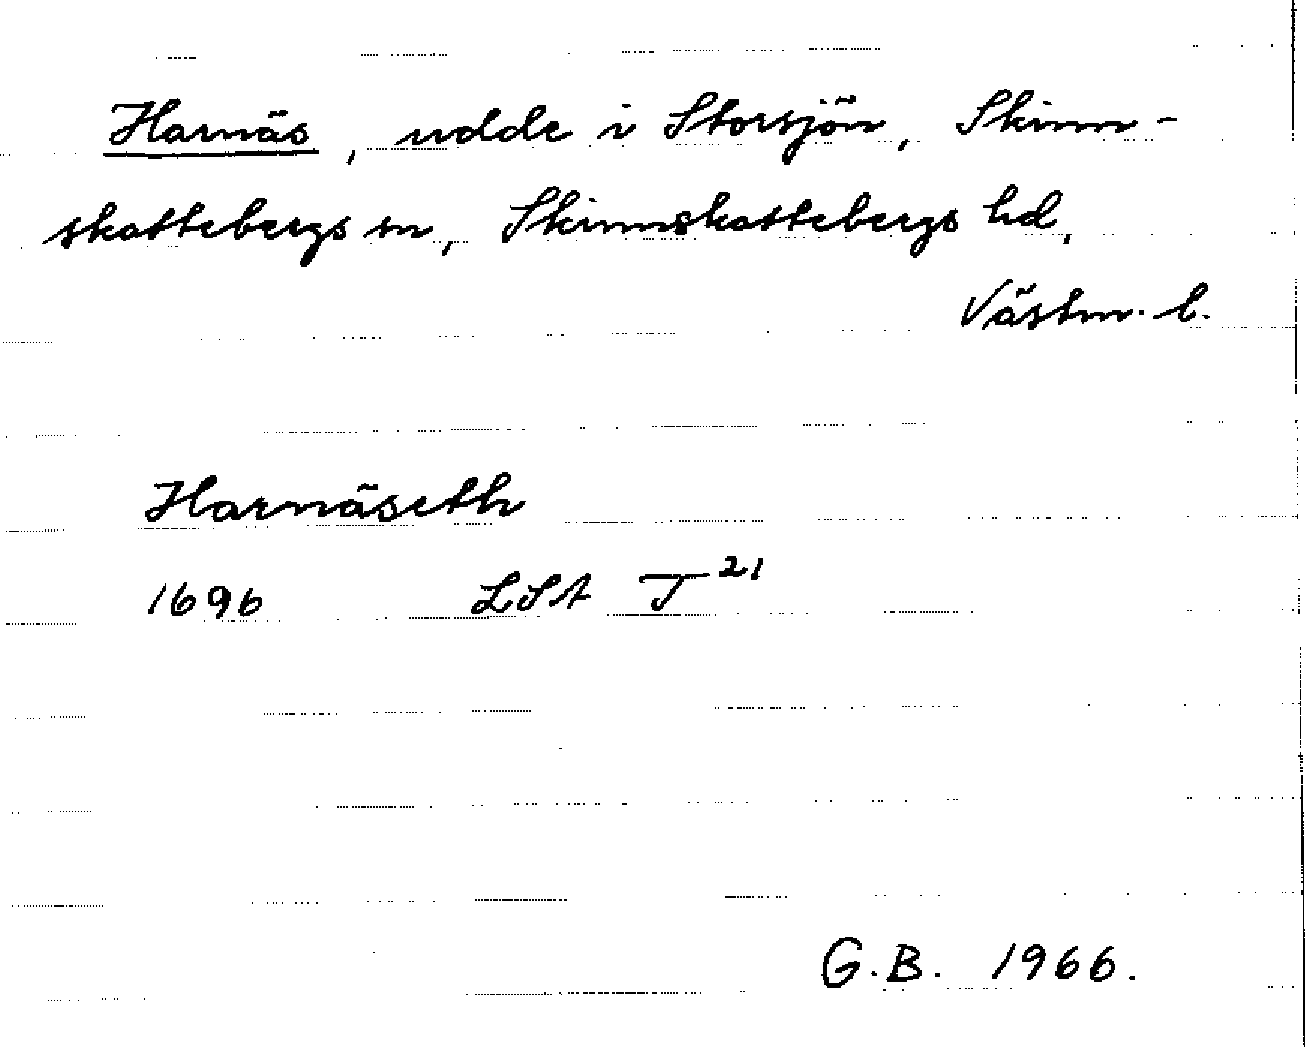 Harnäs, udde i Storsjön, Skinn-
skattebergs sn, Skinnskattebergs hd,
Västm. l.
Harnäseth
1696 LSt T21
G.B. 1966.